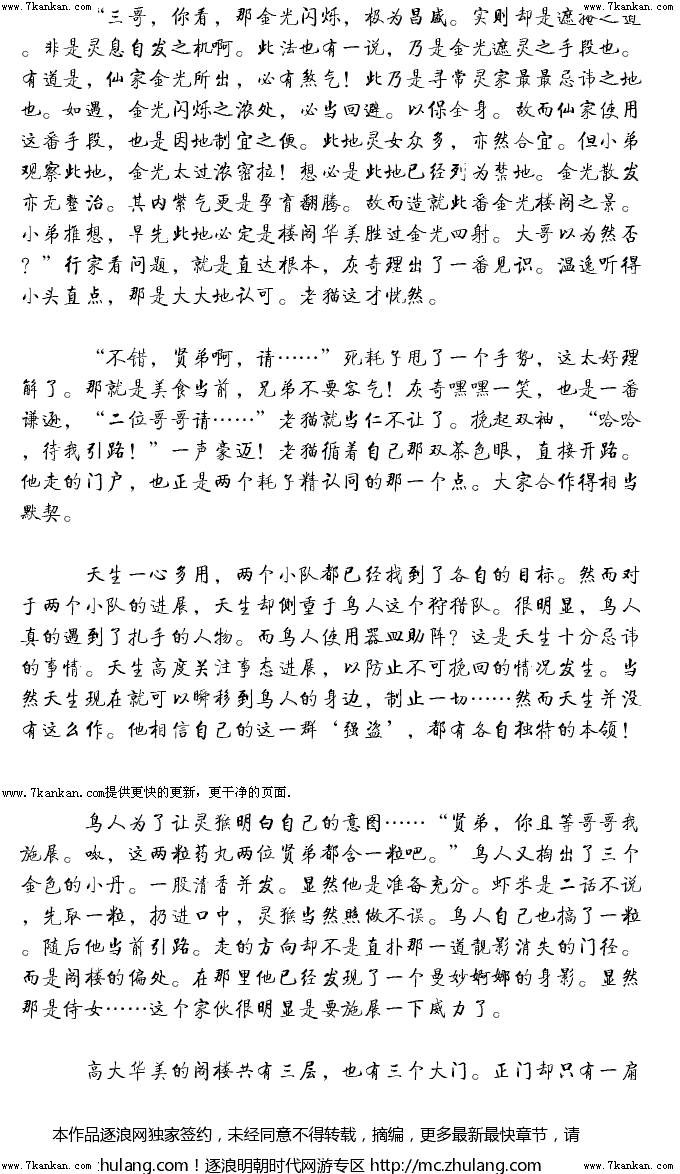 www.7kankan.com www.7kankan.com
“三哥，你看，那金光闪烁，极为昌盛。实则却是遮掩之道
。非是灵息自发之机啊。此法也有一说，乃是金光遮灵之手段也。
有道是，仙家金光所出，必有煞气！此乃是寻常灵家最最忌讳之地
也。如遇，金光闪烁之浓处，必当回避。以保全身。故而仙家使用
这番手段，也是因地制宜之便。此地灵女众多，亦然合宜。但小弟
观察此地，金光太过浓密拉！想必是此地已经列为禁地。金光散发
亦无整治。其内紫气更是孕育翻腾。故而造就此番金光楼阁之景。
小弟推想，早先此地必定是楼阁华美胜过金光四射。大哥以为然否
？”行家看问题，就是直达根本，灰奇理出了一番见识。温逸听得
小头直点，那是大大地认可。老猫这才恍然。
“不错，贤弟啊，请……”死耗子甩了一个手势，这太好理
解了。那就是美食当前，兄弟不要客气！灰奇嘿嘿一笑，也是一番
谦逊，“二位哥哥请……”老猫就当仁不让了。挽起双袖，“哈哈
，待我引路！”一声豪迈！老猫循着自己那双茶色眼，直接开路。
他走的门户，也正是两个耗子精认同的那一个点。大家合作得相当
默契。
天生一心多用，两个小队都已经找到了各自的目标。然而对
于两个小队的进展，天生却侧重于鸟人这个狩猎队。很明显，鸟人
真的遇到了扎手的人物。而鸟人使用器皿助阵？这是天生十分忌讳
的事情。天生高度关注事态进展，以防止不可挽回的情况发生。当
然天生现在就可以瞬移到鸟人的身边，制止一切……然而天生并没
有这么作。他相信自己的这一群‘强盗’，都有各自独特的本领！
www.7kankan.com提供更快的更新，更干净的页面.
鸟人为了让灵猴明白自己的意图……“贤弟，你且等哥哥我
施展。呶，这两粒药丸两位贤弟都含一粒吧。”鸟人又掏出了三个
金色的小丹。一股清香并发。显然他是准备充分。虾米是二话不说
，先取一粒，扔进口中，灵猴当然照做不误。鸟人自己也搞了一粒
。随后他当前引路。走的方向却不是直扑那一道靓影消失的门径。
而是阁楼的偏处。在那里他已经发现了一个曼妙婀娜的身影。显然
那是侍女……这个家伙很明显是要施展一下威力了。
高大华美的阁楼共有三层，也有三个大门。正门却只有一扇
本作品逐浪网独家签约，未经同意不得转载，摘编，更多最新最快章节，请
www.7kankan.com :hulang.com！逐浪明朝时代网游专区 http://mc.zhulang.com www.7kankan.com